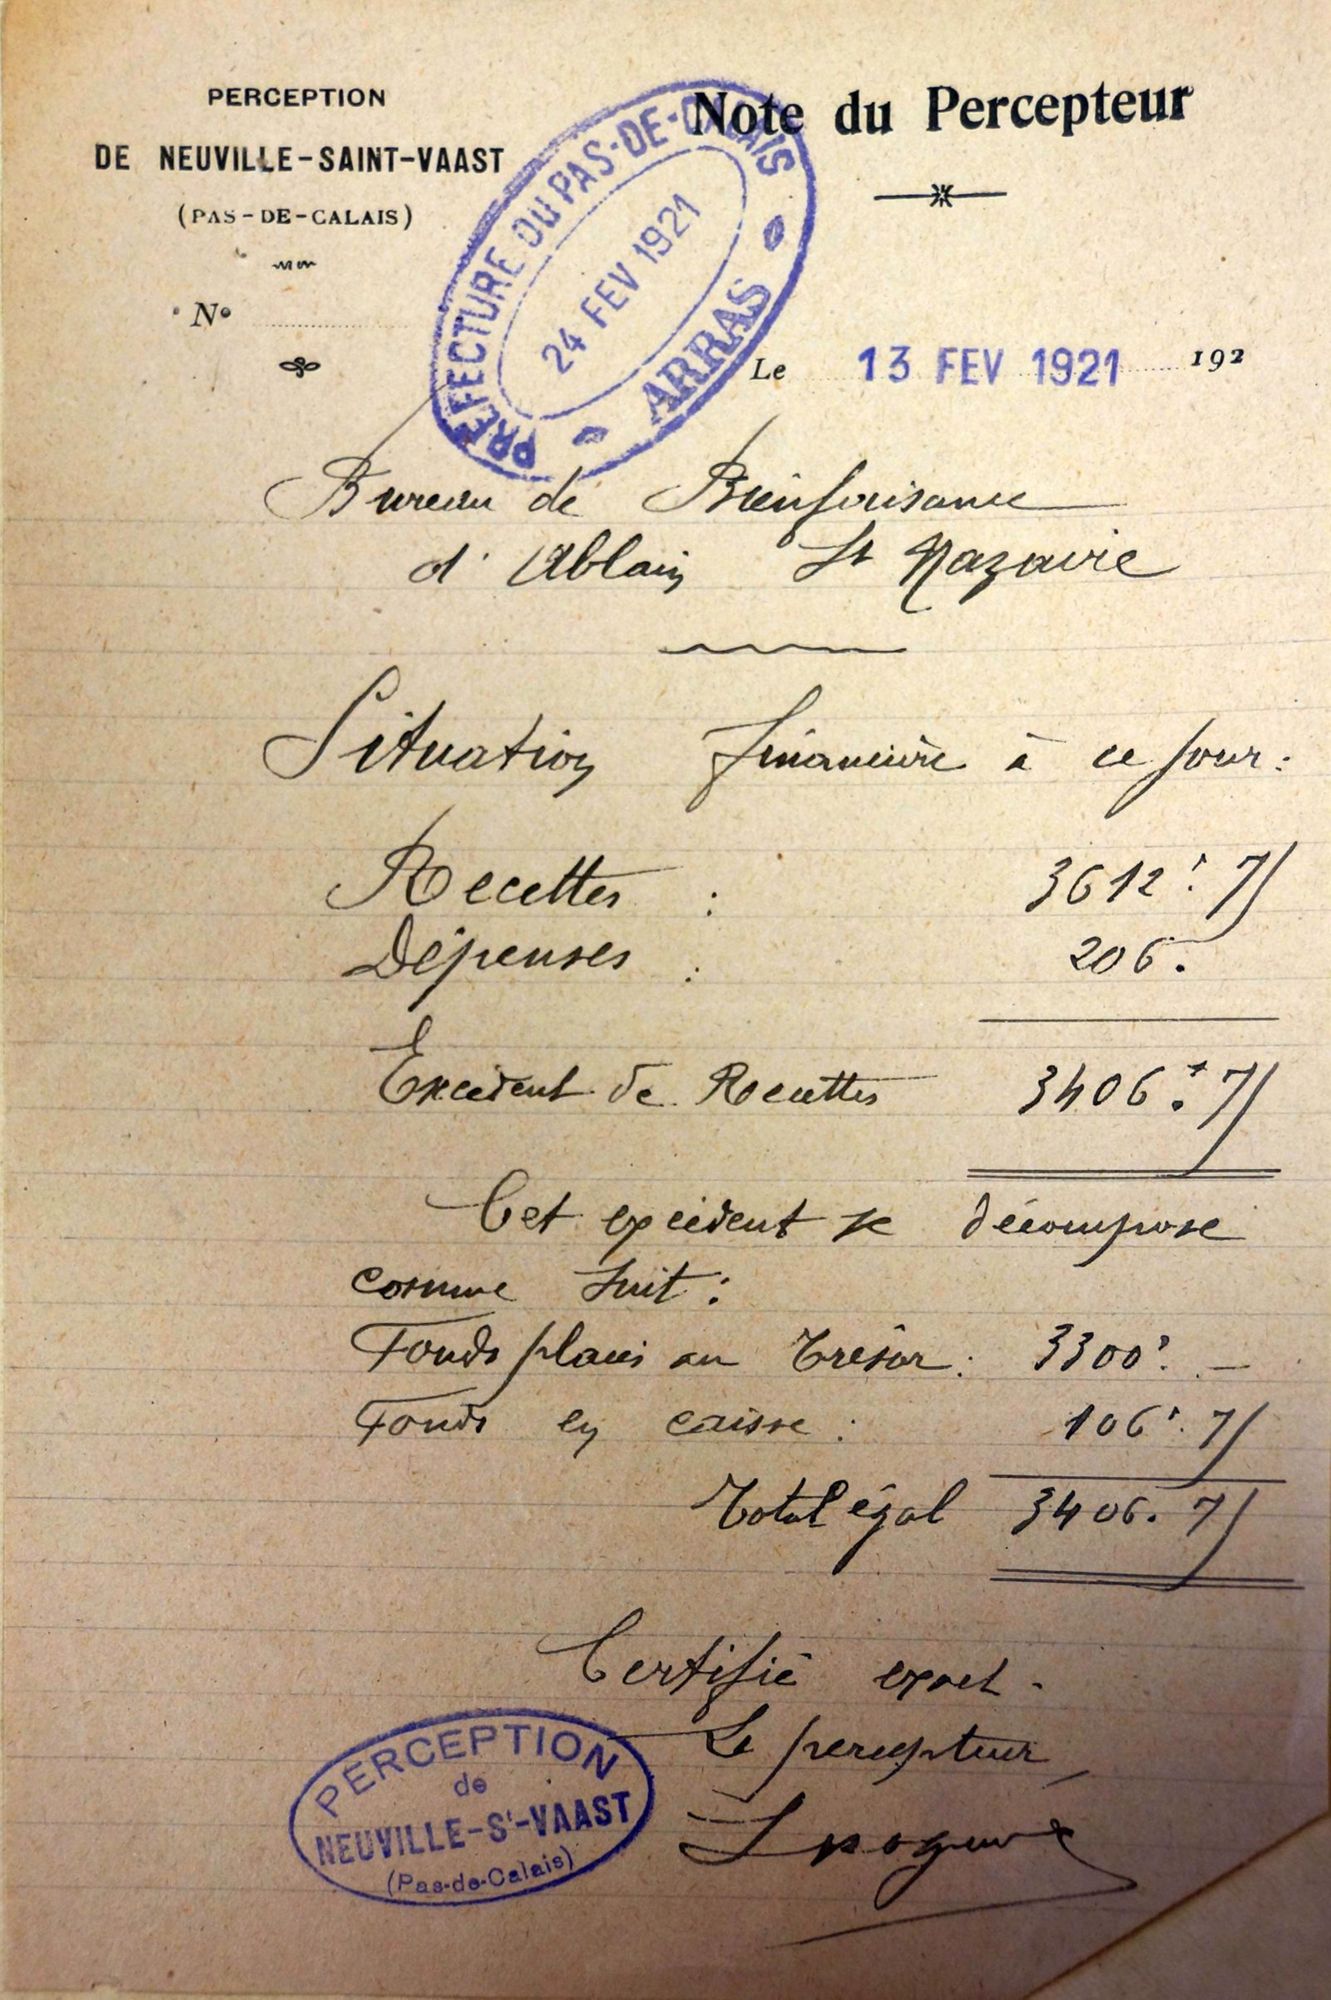 PERCEPTION
DE NEUVILLE-SAINT-VAAST
(PAS-DE-CALAIS)
N°
Note du Percepteur
PREFECTURE DU PAS-DE-CALAIS
24 FEV 1921
ARRAS
Le 13 FEV 1921 192
Bureau de Bienfaisance
d'Ablain St Nazaire
Situation financière à ce jour:
Recettes : 3612f. 75
Dépenses : 206.
Excédent de Recettes 3406f. 75
Cet excédent se décompose
comme suit :
Fonds placés au Trésor : 3300f. —
Fonds en caisse : 106f. 75
Total égal 3406. 75
Certifié exact.
Le percepteur,
PERCEPTION
de
NEUVILLE-St-VAAST
(Pas-de-Calais)